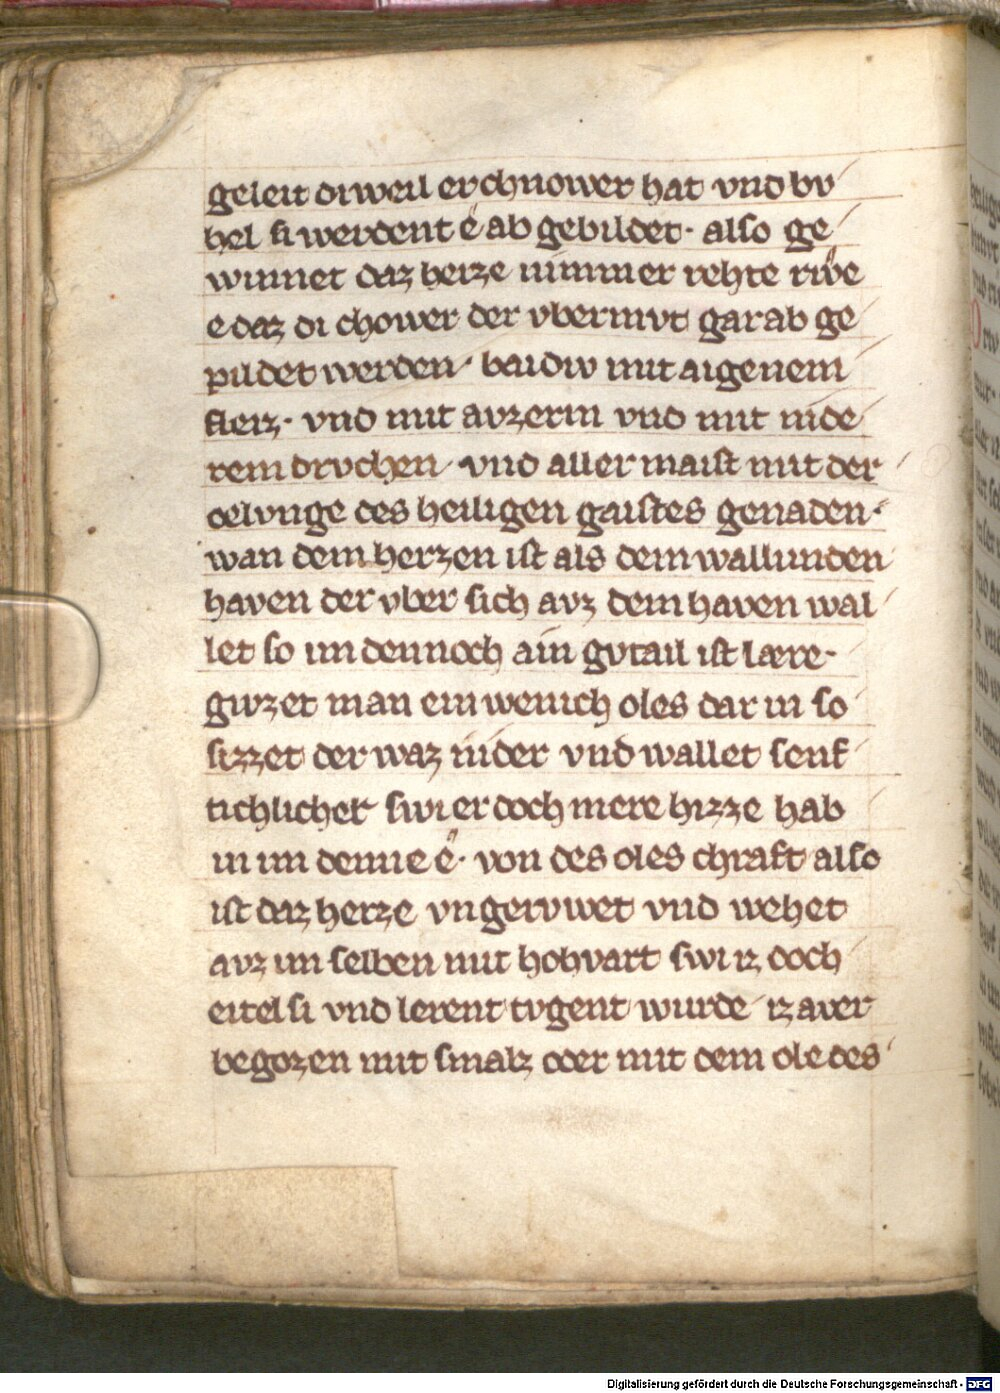 geleit diweil er chnower hat vnd bv
hel si werdent e͛ ab gebildet · also ge
winnet daz herze nimmer rehte riwe
e daz di chower der vbermvt gar ab ge
pildet werden · baidiv mit aigenem
fleiz · vnd mit avzerm vnd mit nide
rem drvchen vnd aller maist mit der
oelvnge des heiligen gaistes genaden ·
wan dem herzen ist als dem wallunden
haven der vber sich avz dem haven wal
let so im dennoch ain gvtail ist lære ·
givzet man ein wenich oles dar in so
sizzet der waz nider vnd wallet senf
tichlicher swi er doch mere hizze hab
in im denne e · von des oles chraft also
ist daz herze vngervwet vnd wehet
avz im selben mit hohvart swi iz doch
eitel si vnd lerent tvgent wurde iz aver
begozen mit smalz oder mit dem ole des
Digitalisierung gefördert durch die Deutsche Forschungsgemeinschaft - DFG